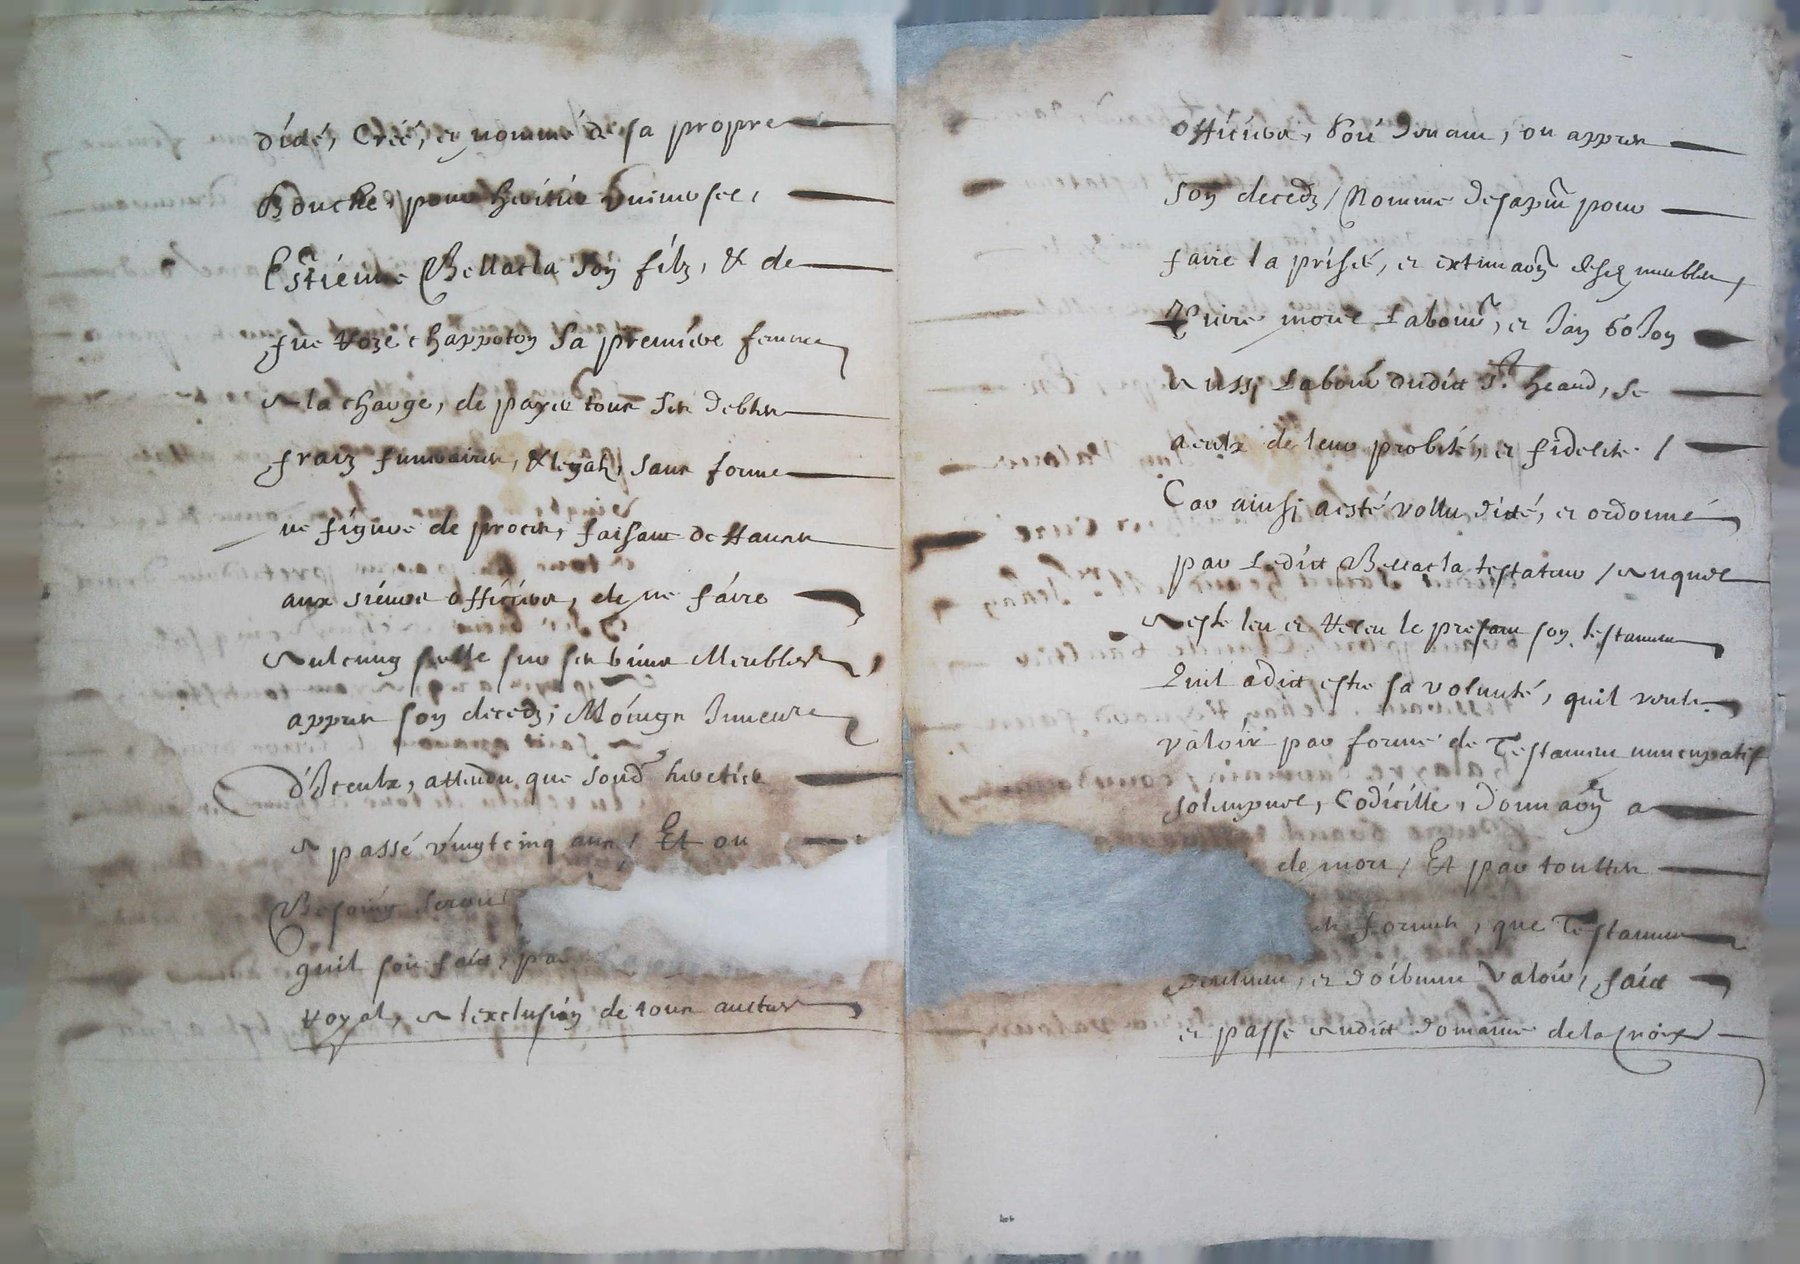 didé, Créé, et nommé de sa propre
Bouche, pour heritier universel,
Estienne Bellacla son filz, & de
fue Roze Chappoton sa premiere femme
a la charge, de payer tous ses debtes
fraiz funeraires, & legatz, sans forme
ne figure de proces, faisant deffances
aux sieurs officiers, de ne faire
aulcung scelle sur ses biens Meubles
appres son decedz, Moingz Inventre
d'Iceulx, attendu que sond heretier
a passé vingtcinq ans / Et ou
Besoing seroit
quil soit faict, par
royal, a lexclusion de tous aultres
officiers, Soit Devant, ou appres
Son decedz / Nomme des apnt pour
faire la prisée, et extimaon desd meubles,
Pierre morel Labour, et Jan
aussi Labour dudict St heand, se
a eulx de leur probité, et fidelite /
Car ainsi a esté vollu dicté, et ordonné
par Ledict Bellacla testateur / Auquel
a este leu et releu le present son testament
Quil a dict estre sa volunté, quil veult
valoir par forme de Testament nuncupatif
solempnel, Codicille, donnaon a
de mort / Et par touttes
formes, que Testament
peulvent, et doibvent valoir, faict
et passe audict domaine de la Croix